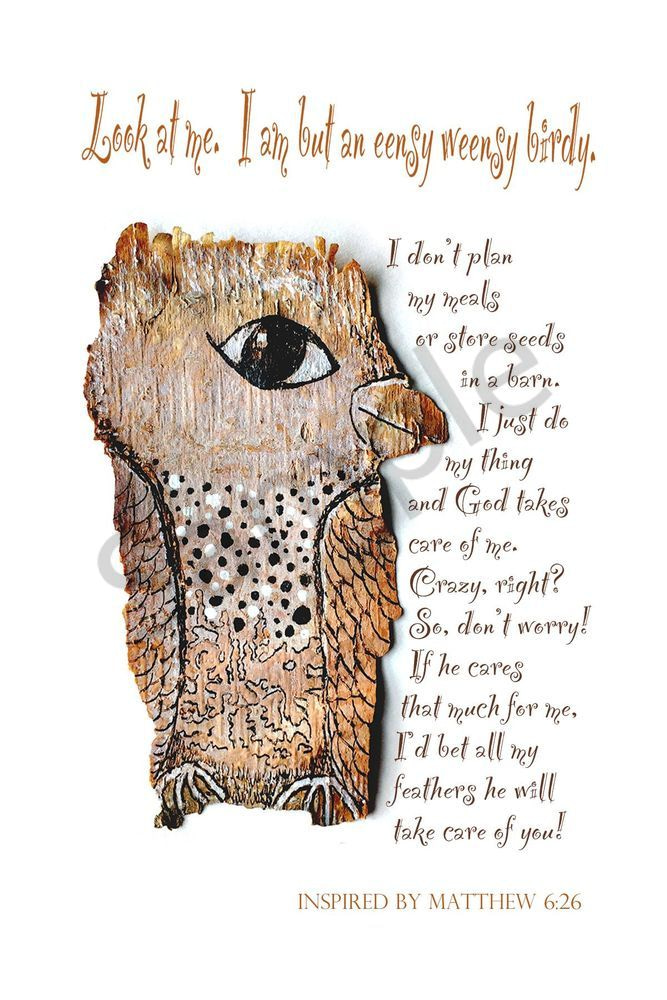 Look at me. I am but an eensy weensy birdy.
I don't plan
my meals
or store seeds
in a barn.
I just do
my thing
and God takes
care of me.
Crazy, right?
So, don't worry!
If he cares
that much for me,
I'd bet all my
feathers he will
take care of you!
INSPIRED BY MATTHEW 6:26
sample